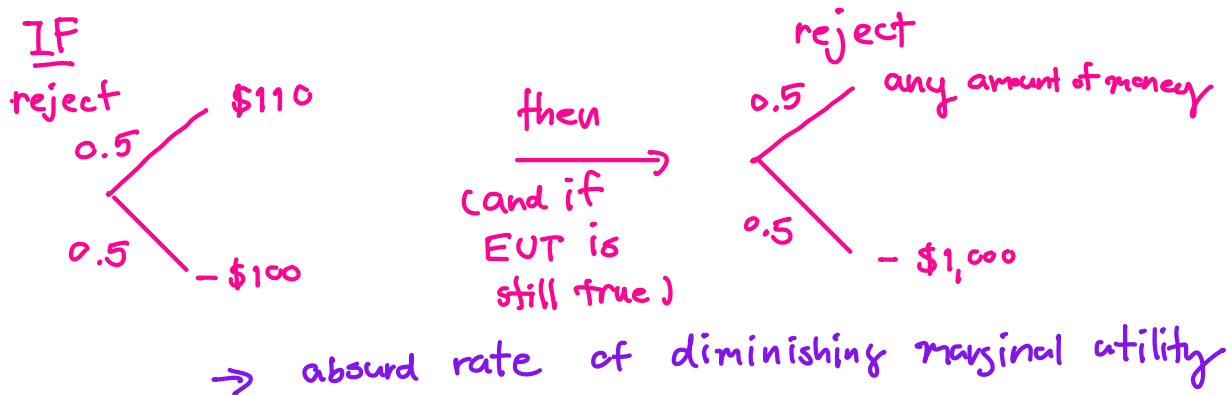 IF
reject
0.5
$110
0.5
- $100
then
(and if
EUT is
still true)
reject
0.5
any amount of money
0.5
- $1,000
→ absurd rate of diminishing marginal utility